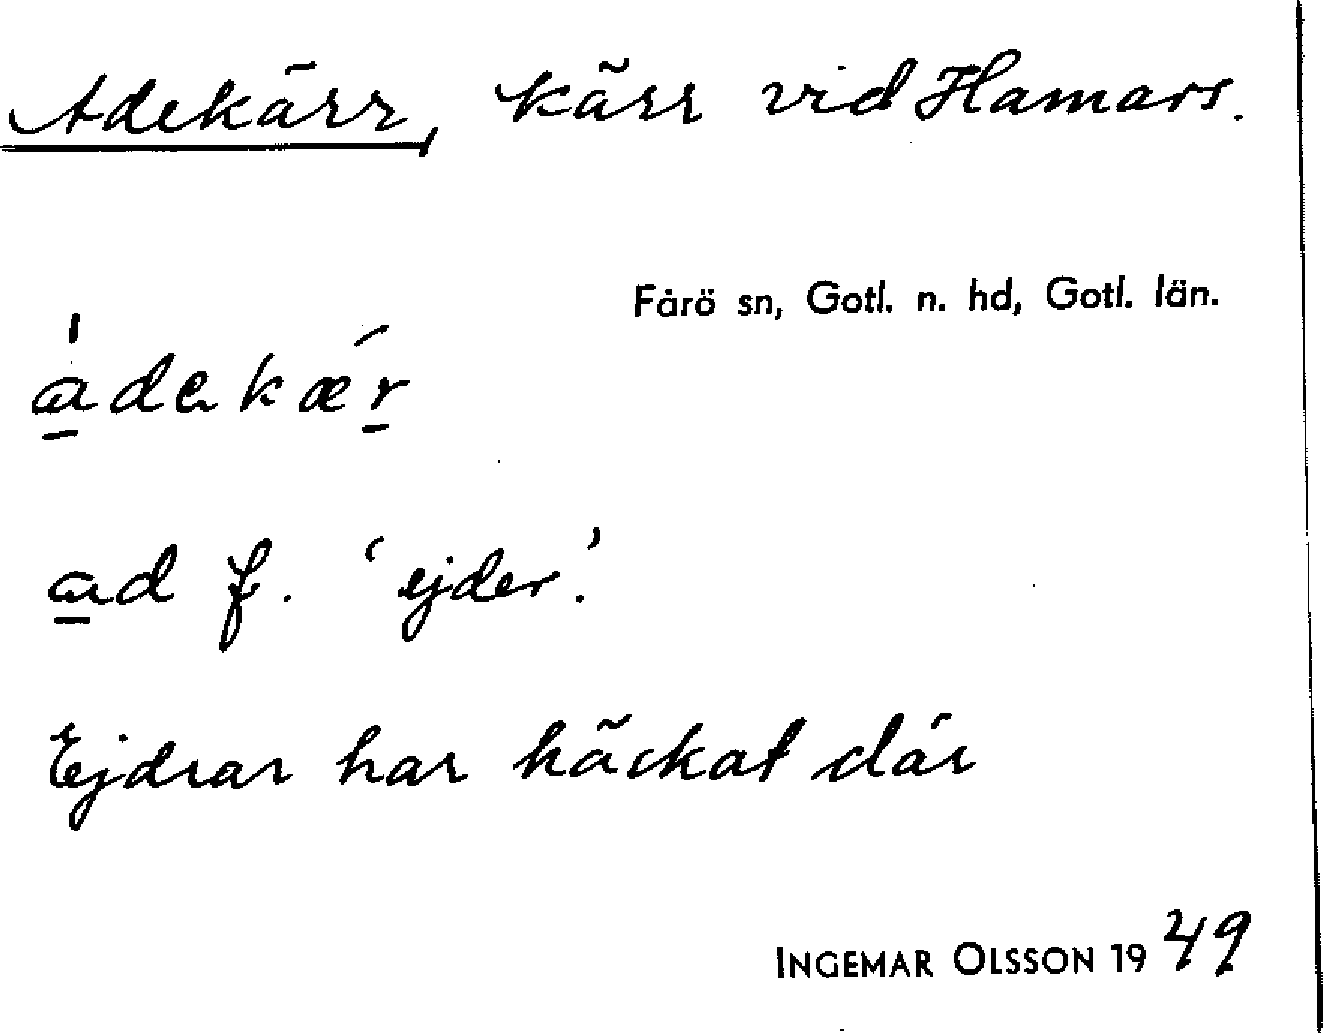 Adekärr, kärr vid Hamars.
Fårö sn, Gotl. n. hd, Gotl. län.
a̱̍dekæ´ṟ
a̱d f. ‘ejder.’
Ejdrar har häckat där
INGEMAR OLSSON 1949